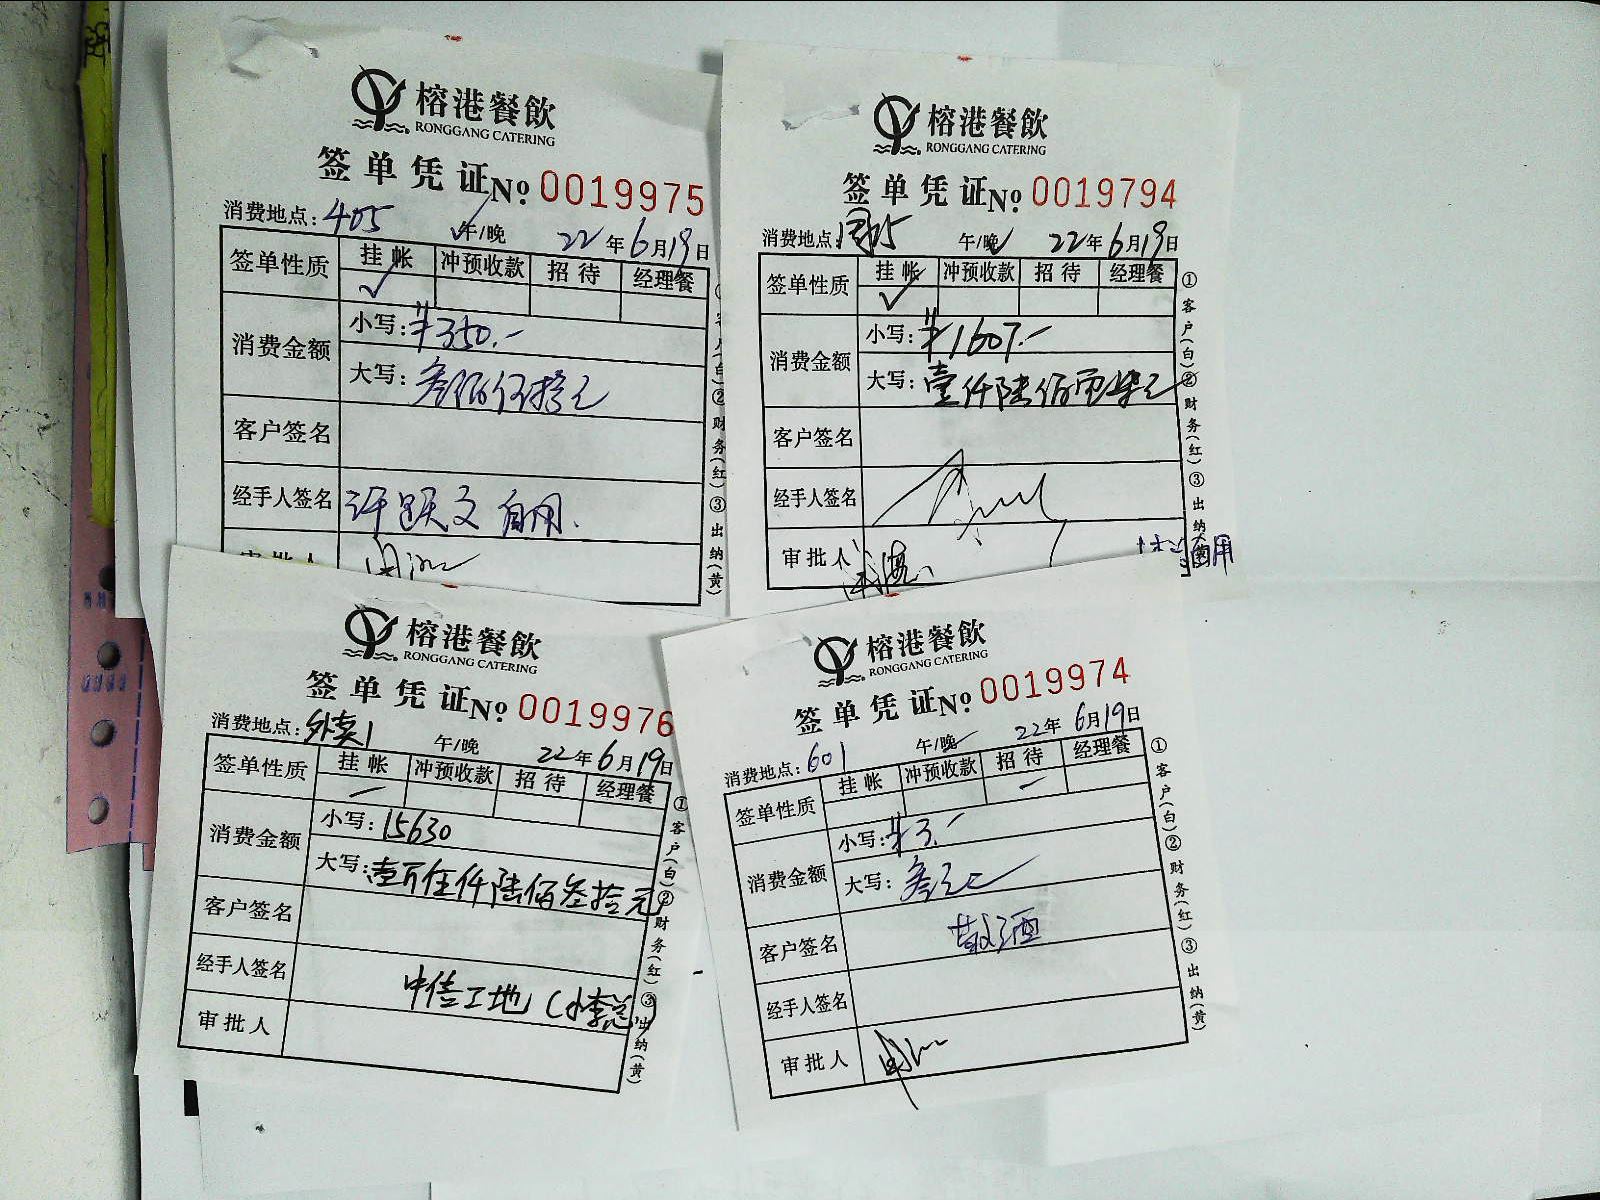 榕港餐飲
RONGGANG CATERING
签单凭证 No 0019975
消费地点: 405 午/晚 22年6月19日
签单性质 挂帐 冲预收款 招待 经理餐
✓
消费金额 小写: ¥350.-
大写: 叁佰伍拾元
客户签名
经手人签名 许跃文 自用.
财务(红) ③出纳(黄)
榕港餐飲
RONGGANG CATERING
签单凭证 No 0019794
消费地点: 午/晚 22年6月19日
签单性质 挂帐 冲预收款 招待 经理餐
✓
消费金额 小写: ¥1607.-
大写: 壹仟陆佰零柒元
客户签名
经手人签名
审批人
①客户(白) ②财务(红) ③出纳
榕港餐飲
RONGGANG CATERING
签单凭证 No 0019976
消费地点: 外卖1 午/晚 22年6月19日
签单性质 挂帐 冲预收款 招待 经理餐
消费金额 小写: 15630
大写: 壹万伍仟陆佰叁拾元
客户签名
经手人签名 中信工地(小李总)
审批人
①客户(白) ②财务(红) ③出纳(黄)
榕港餐飲
RONGGANG CATERING
签单凭证 No 0019974
消费地点: 601 午/晚 22年6月19日
签单性质 挂帐 冲预收款 招待 经理餐
消费金额 小写: ¥3.-
大写: 叁元
客户签名 敬酒
经手人签名
审批人
①客户(白) ②财务(红) ③出纳(黄)